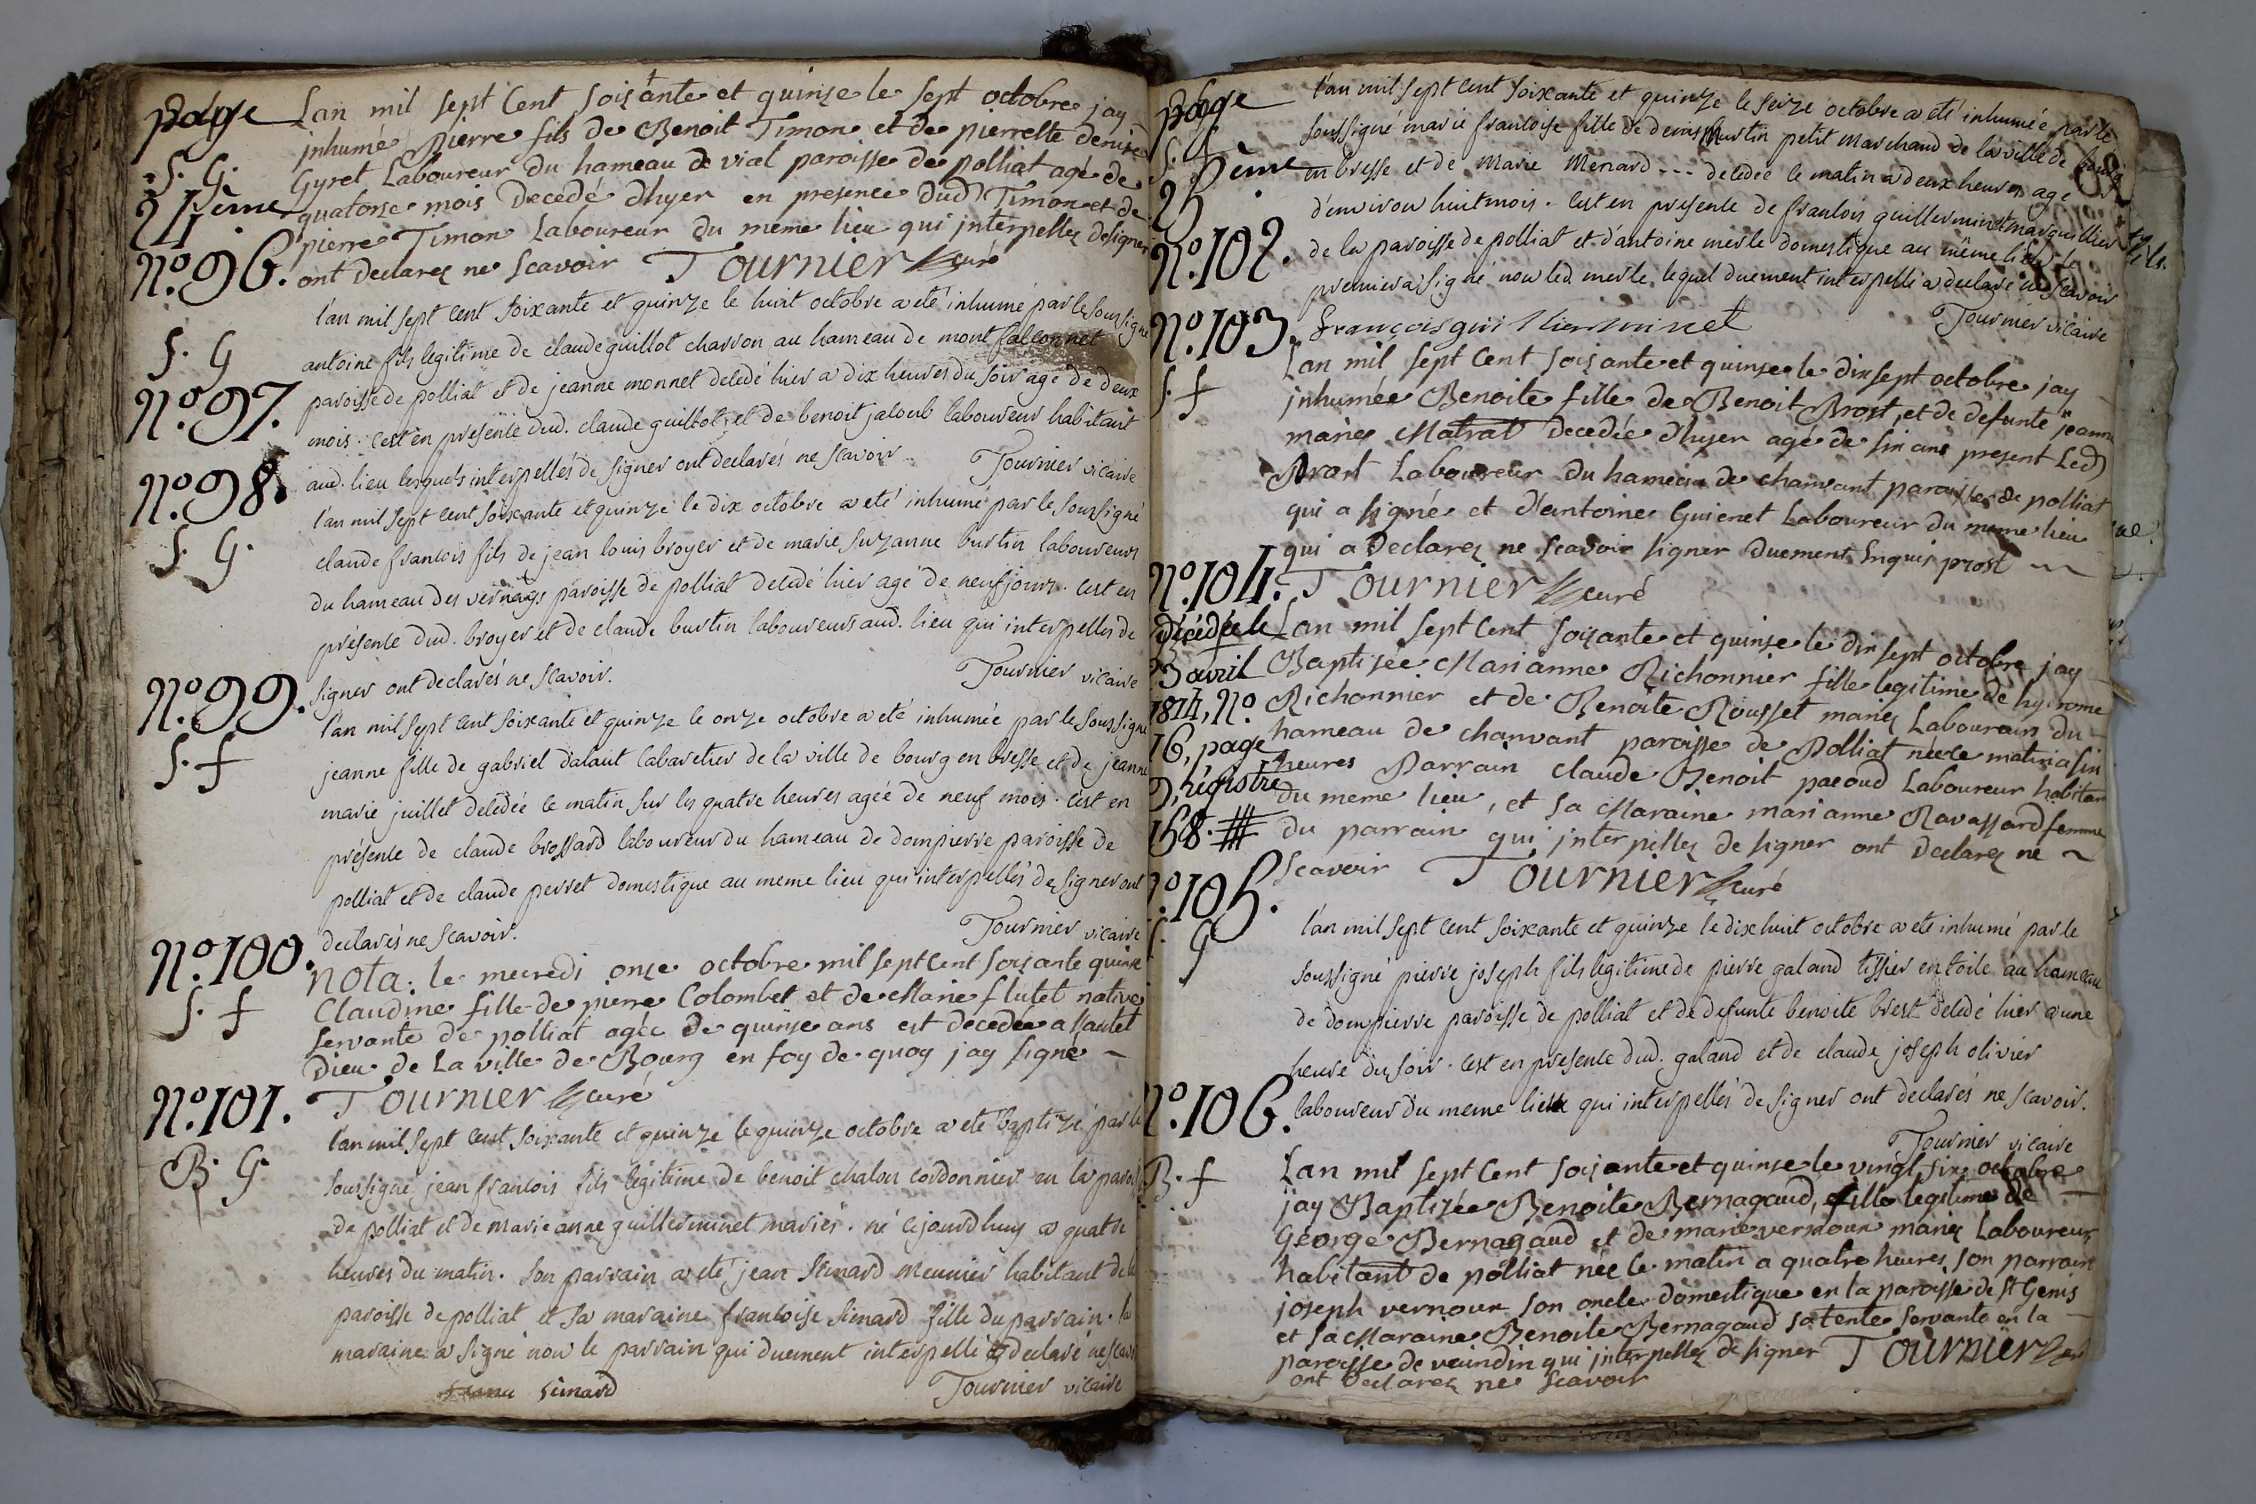 page
S. G.
24ème
N°. 96.
Lan mil sept Cent soixante et quinze le sept octobre jay
jnhumé Pierre fils de Benoit Timon et de pierrette denise
Gyret Laboureur du hameau de vial paroisse de polliat agé de
quatorse mois Decedé dhyer en presence Dud Timon et de
pierre Timon Laboureur du meme lieu qui jnterpellez designer
ont declarez ne scavoir Tournier curé
S. G
N°. 97.
l'an mil sept cent soixante et quinze le huit octobre a eté inhumé par le soussigné
antoine fils legitime de claude guillot charron au hameau de mont falconnet
paroisse de polliat et de jeanne monnet decedé hier a dix heures du soir agé de deux
mois. c'est en présence dud. claude guillot et de benoit jacoub laboureur habitant
aud. lieu lesquels interpellés de signer ont declarés ne scavoir Tournier vicaire
N°. 98.
S. G.
l'an mil sept cent soixante et quinze le dix octobre a eté inhumé par le soussigné
claude francois fils de jean louis broyer et de marie suzanne burtin laboureurs
du hameau des vernays paroisse de polliat decedé hier agé de neuf jours. c'est en
présence dud. broyer et de claude burtin laboureurs aud. lieu qui interpellés de
signer ont declarés ne scavoir. Tournier vicaire
N°. 99.
S. f
l'an mil sept cent soixante et quinze le onze octobre a eté inhumée par le soussigné
jeanne fille de gabriel dalaut cabaretier de la ville de bourg en bresse et de jeanne
marie juillet decedée ce matin sur les quatre heures agée de neuf mois. c'est en
présence de claude brossard laboureur du hameau de dompierre paroisse de
polliat et de claude perret domestique au meme lieu qui interpellés de signer ont
declarés ne scavoir. Tournier vicaire
N°. 100.
S. f
Nota: le mecredi onze octobre mil sept cent soixante quinse
Claudine fille de pierre Colombet et de Marie flutet native
servante de polliat agée de quinse ans est decedée a l'autel
Dieu de La ville de Bourg en foy de quoy jay signé
Tournier curé
N°. 101.
B. G.
l'an mil sept cent soixante et quinze le quinze octobre a eté baptizé par le
soussigné jean francois fils légitime de benoit chalon cordonnier en la paroisse
de polliat et de marie anne guillerminet mariés. né cejourdhuy a quatre
heures du matin. son parrain a eté jean simard meunier habitant de la
paroisse de polliat et sa maraine francoise simard fille du parrain. la
maraine a signé non le parrain qui duement interpellé a declaré ne scavoir
simard Tournier vicaire
page
S. f
25ème
N°. 102.
l'an mil sept cent soixante et quinze le seize octobre a eté inhumée par le
soussigné marie francoise fille de denis burtin petit marchand de la ville de bourg
en bresse et de Marie Menard --- decedée le matin a deux heures agé
d'environ huit mois. c'est en présence de francois guillerminet marguillier
de la paroisse de polliat et d'antoine merle domestique au même lieu le
premier a signé non led. merle lequel duement interpellé a declaré ne scavoir
françois guillierminet Tournier vicaire
N°. 103.
S. f
Lan mil sept Cent soixante et quinse le dixsept octobre jay
jnhumée Benoite fille de Benoit Brost, et de defunte jeanne
marie Matrat decedée dhyer agé de six ans present Led
Prost Laboureur du hameau de chamvant paroisse de polliat
qui a signé et d'antoine Guienet Laboureur du meme lieu
qui a Declarez ne scavoir signer Duement Enquis prost
Tournier curé
N°. 104.
Décédée le
3 avril
1814, N°.
16, page
9, registre
168. #
Lan mil sept cent soixante et quinse le dix sept octobre jay
Baptisée Marianne Richonnier fille legitime de hyerome
Richonnier et de Benoite Rousset mariez Laboureurs du
hameau de chamvant paroisse de Polliat née le matin a six
heures Parrain claude Benoit pacoud Laboureur habitant
du meme lieu, et sa Maraine marianne Ravassard femme
du parrain qui jnterpellez de signer ont declarez ne
scavoir Tournier curé
N°. 105.
S. G
l'an mil sept cent soixante et quinze le dixhuit octobre a eté inhumé par le
soussigné pierre joseph fils légitime de pierre galand tissier en toile au hameau
de dompierre paroisse de polliat et de defunte benoite brest decedé hier a une
heure du soir. c'est en présence dud. galand et de claude joseph olivier
laboureur du meme lieu qui interpellés de signer ont declarés ne scavoir.
Tournier vicaire
N°. 106.
B. f
Lan mil sept Cent soixante et quinse le vingt six octobre
jay Baptizée Benoite Bernagaud, fille legitime de
George Bernagaud et de marie vernoux mariez Laboureurs
habitant de polliat née le matin a quatre heures, son parrain
joseph vernoux son oncle domestique en la paroisse de St Genis
et sa Maraine Benoite Bernagaud sa tente servante en la
paroisse de vaindin qui jnterpellez de signer Tournier
ont Declarez ne scavoir